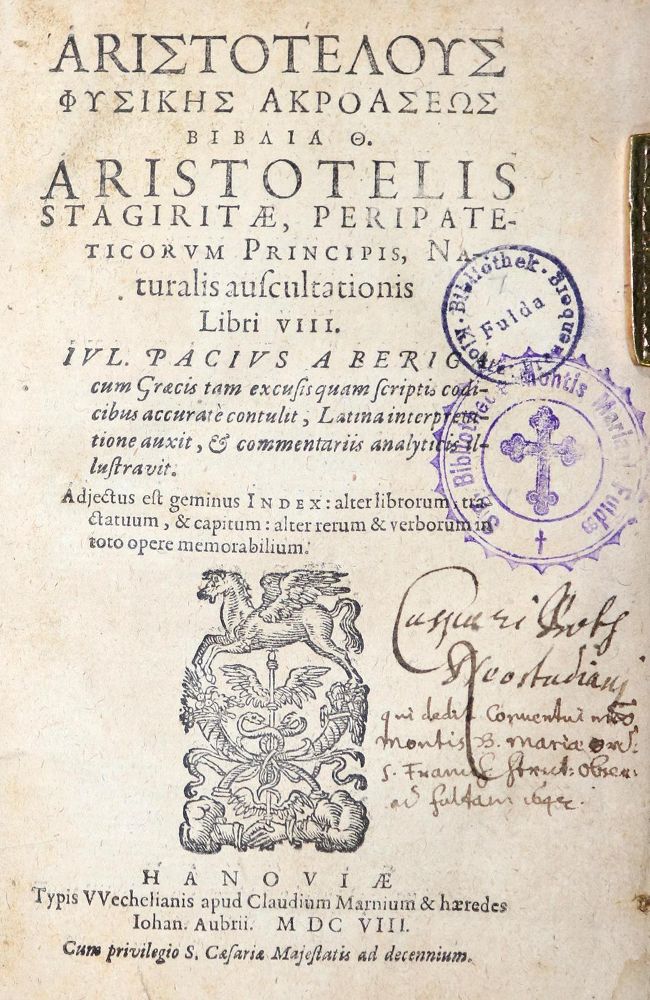 ΑΡΙΣΤΟΤΕΛΟΥΣ
ΦΥΣΙΚΗΣ ΑΚΡΟΑΣΕΩΣ
ΒΙΒΛΙΑ Θ.
ARISTOTELIS
STAGIRITÆ, PERIPATE-
TICORVM PRINCIPIS, NA-
turalis auſcultationis
Libri VIII.
IVL. PACIVS A BERIG
cum Græcis tam excuſis quam ſcriptis codi-
cibus accuratè contulit, Latina interpreta-
tione auxit, & commentariis analyticis il-
luſtravit.
Adjectus eſt geminus INDEX: alter librorum, tra-
ctatuum, & capitum: alter rerum & verborum in
toto opere memorabilium.
Bibliothek · Kloster Frauenberg
Fulda
Sig. Bibliothecae Montis Mariae Fuldae
Caspari
Neostadianj
qui dedit Conventui
montis B. Mariæ ord:
S. Franc: strict: Obser:
ad fuldam
HANOVIÆ
Typis VVechelianis apud Claudium Marnium & hæredes
Iohan. Aubrii. M DC VIII.
Cum privilegio S. Cæſariæ Majeſtatis ad decennium.